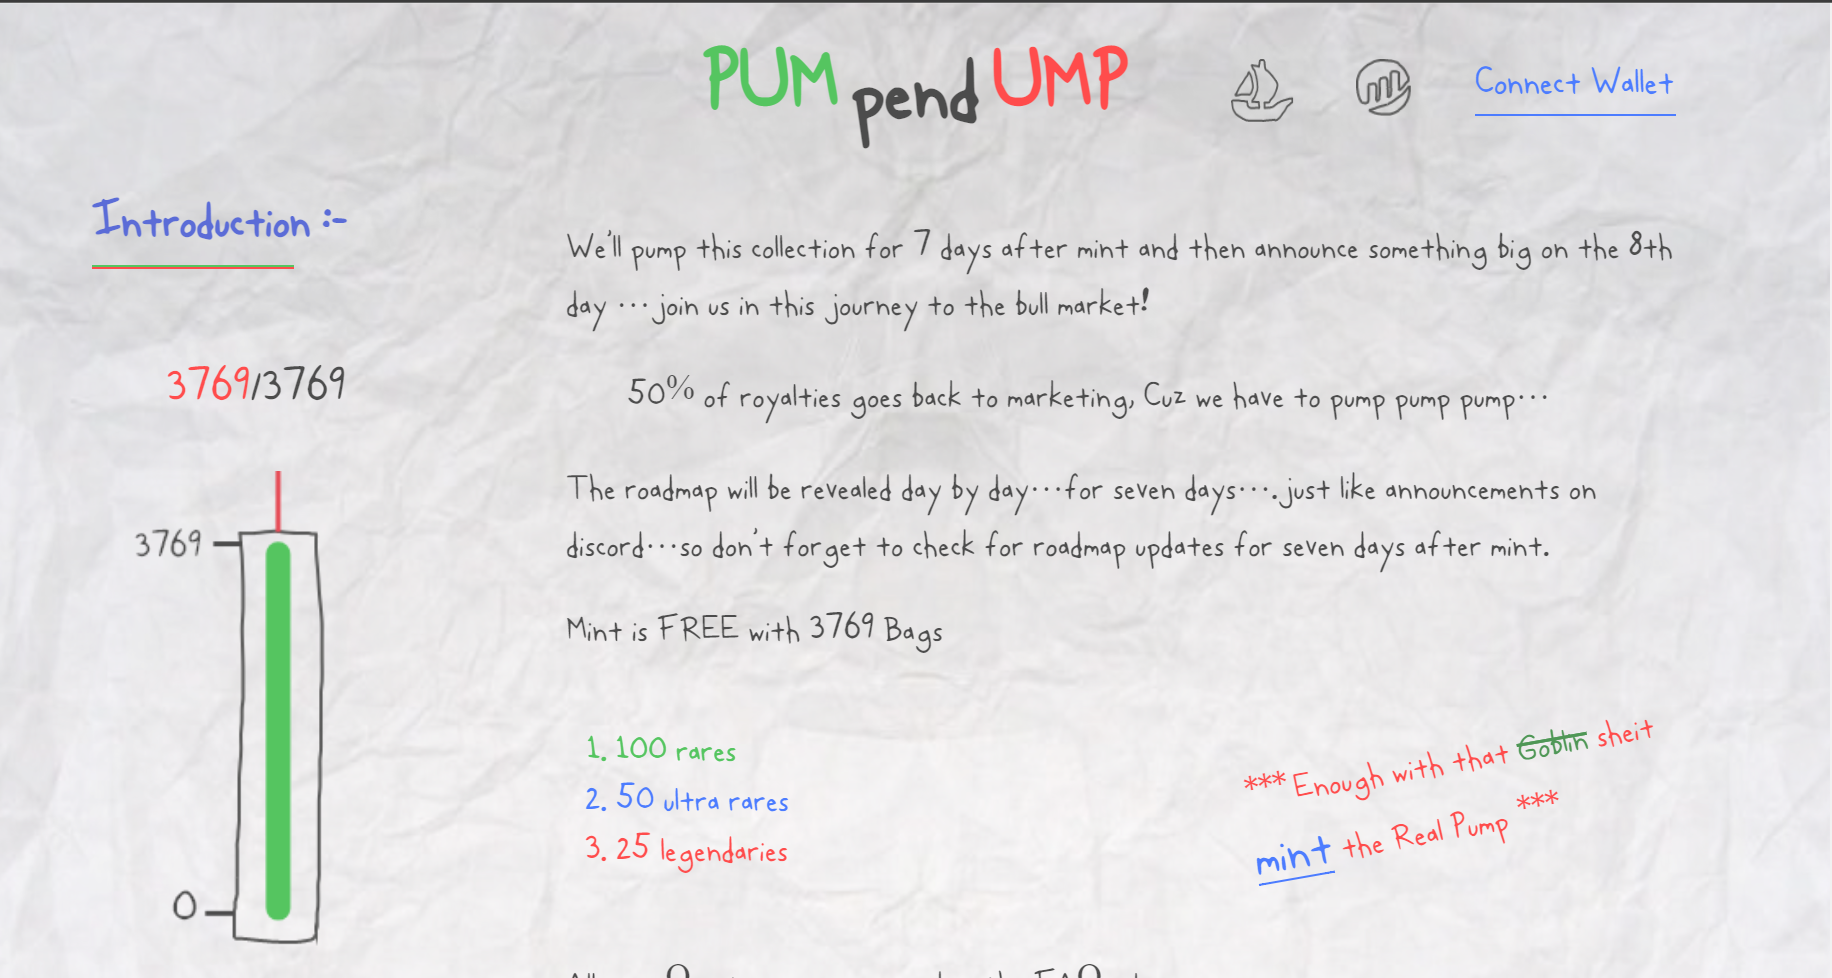 PUM pend UMP
Connect Wallet
Introduction :-
We'll pump this collection for 7 days after mint and then announce something big on the 8th
day ... join us in this journey to the bull market!
3769/3769
50% of royalties goes back to marketing, Cuz we have to pump pump pump...
The roadmap will be revealed day by day...for seven days....just like announcements on
discord...so don't forget to check for roadmap updates for seven days after mint.
3769
Mint is FREE with 3769 Bags
1. 100 rares
2. 50 ultra rares
3. 25 legendaries
*** Enough with that Goblin sheit
mint the Real Pump ***
0